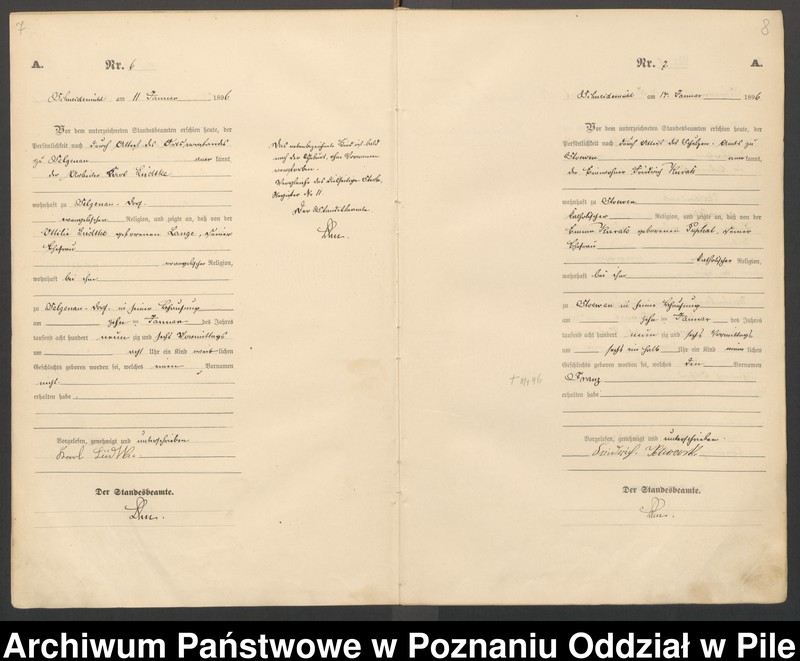 7
A. Nr. 6
Schneidemühl am 11 Januar 1896
Vor dem unterzeichneten Standesbeamten erschien heute, der
Persönlichkeit nach durch Attest des Ortsvorstandes
zu Selgenau kannt,
der Arbeiter Karl Lüdtke
wohnhaft zu Selgenau-Dorf
evangelischer Religion, und zeigte an, daß von der
Ottilie Lüdtke geborenen Lange, seiner
Ehefrau
evangelischer Religion,
wohnhaft bei ihm
zu Selgenau-Dorf in seiner Behausung
am zehn ten Januar des Jahres
tausend acht hundert neun zig und sechs Vormittags
um acht Uhr ein Kind lichen
Geschlechts geboren worden sei, welches Vornamen
nicht
erhalten habe
Vorgelesen, genehmigt und unterschrieben
Karl Lüdtke
Der Standesbeamte.
Das nebenbezeichnete Kind ist bald
nach der Geburt, ohne Vornamen
verstorben.
Vergleiche das diesseitige Sterbe-
Register No 11
Der Standesbeamte
8
Nr. 7 A.
Schneidemühl am 14 Januar 1896
Vor dem unterzeichneten Standesbeamten erschien heute, der
Persönlichkeit nach durch Attest des Schulzen-Amts zu
Stoewen kannt,
der Einwohner Friedrich
wohnhaft zu Stoewen
katholischer Religion, und zeigte an, daß von der
Emma geborenen seiner
Ehefrau
katholischer Religion,
wohnhaft bei ihm
zu Stoewen in seiner Behausung
am zehn ten Januar des Jahres
tausend acht hundert neun zig und sechs Vormittags
um sechs ein halb Uhr ein Kind männ lichen
Geschlechts geboren worden sei, welches den Vornamen
Franz
erhalten habe
Vorgelesen, genehmigt und unterschrieben.
Der Standesbeamte.
Archiwum Państwowe w Poznaniu Oddział w Pile